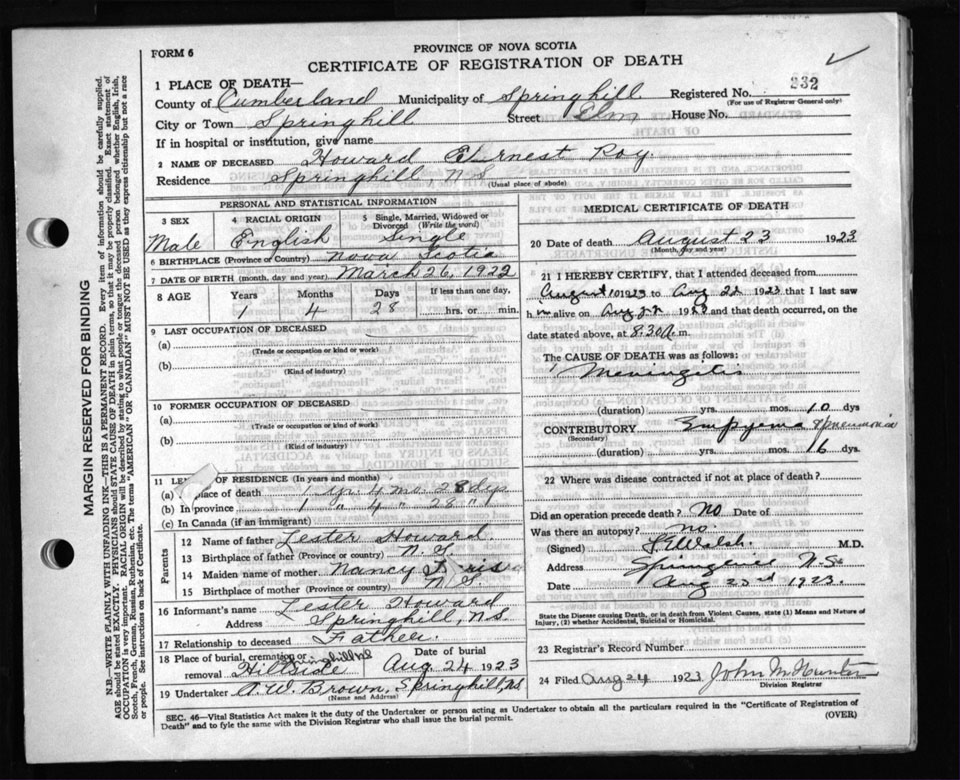 FORM 6
PROVINCE OF NOVA SCOTIA
CERTIFICATE OF REGISTRATION OF DEATH
1 PLACE OF DEATH—
Registered No. 232
(For use of Registrar General only)
County of Cumberland Municipality of Springhill
City or Town Springhill Street Elm House No.
If in hospital or institution, give name
2 NAME OF DECEASED Howard Ernest Roy.
Residence Springhill, N.S.
(Usual place of abode)
PERSONAL AND STATISTICAL INFORMATION
3 SEX
Male
4 RACIAL ORIGIN
English
5 Single, Married, Widowed or Divorced (Write the word)
Single
6 BIRTHPLACE (Province or Country) Nova Scotia
7 DATE OF BIRTH (month, day and year) March 26, 1922
8 AGE Years Months Days If less than one day,
1 4 28 hrs. or min.
9 LAST OCCUPATION OF DECEASED
(a)
(Trade or occupation or kind of work)
(b)
(Kind of industry)
10 FORMER OCCUPATION OF DECEASED
(a)
(Trade or occupation or kind of work)
(b)
(Kind of industry)
11 OF RESIDENCE (In years and months)
(a) place of death 1 yr 4 mo 28 dys
(b) In province 1 " 4 " 28 "
(c) In Canada (if an immigrant)
Parents
12 Name of father Lester Howard.
13 Birthplace of father (Province or country) N.S.
14 Maiden name of mother Nancy
15 Birthplace of mother (Province or country) N.S.
16 Informant's name Lester Howard
Address Springhill, N.S.
17 Relationship to deceased Father.
18 Place of burial, cremation or removal Hillside Springhill NS
Date of burial Aug 24 1923
19 Undertaker A.W. Brown, Springhill, NS
(Name and Address)
MEDICAL CERTIFICATE OF DEATH
20 Date of death August 23 1923
(Month, day and year)
21 I HEREBY CERTIFY, that I attended deceased from
August 10 1923 to Aug 22 1923 that I last saw
h m alive on Aug 22 1923 and that death occurred, on the
date stated above, at 8.30 A m.
The CAUSE OF DEATH was as follows:
Meningitis
(duration) yrs. mos. 10 dys
CONTRIBUTORY Empyema & pneumonia
(Secondary)
(duration) yrs. mos. 16 dys.
22 Where was disease contracted if not at place of death?
Did an operation precede death? No Date of
Was there an autopsy? No.
(Signed) Walsh M.D.
Address Springhill N.S.
Date Aug 23rd 1923.
State the Disease causing Death, or in death from Violent Causes, state (1) Means and Nature of
Injury, (2) whether Accidental, Suicidal or Homicidal.
23 Registrar's Record Number
24 Filed Aug 24 1923 John M Hunter
Division Registrar
SEC. 46—Vital Statistics Act makes it the duty of the Undertaker or person acting as Undertaker to obtain all the particulars required in the "Certificate of Registration of
Death" and to fyle the same with the Division Registrar who shall issue the burial permit.
(OVER)
MARGIN RESERVED FOR BINDING
N.B.—WRITE PLAINLY WITH UNFADING INK—THIS IS A PERMANENT RECORD. Every item of information should be carefully supplied.
AGE should be stated EXACTLY. PHYSICIANS should STATE CAUSE OF DEATH in plain terms, so that it may be properly classified. Exact statement of
OCCUPATION is very important. RACIAL ORIGIN will be described by stating to what people or tongue the deceased person belonged whether English, Irish,
Scotch, French, German, Russian, Ruthenian, etc. The terms "AMERICAN" OR "CANADIAN" MUST NOT BE USED as they express citizenship but not a race
or people. See instructions on back of Certificate.